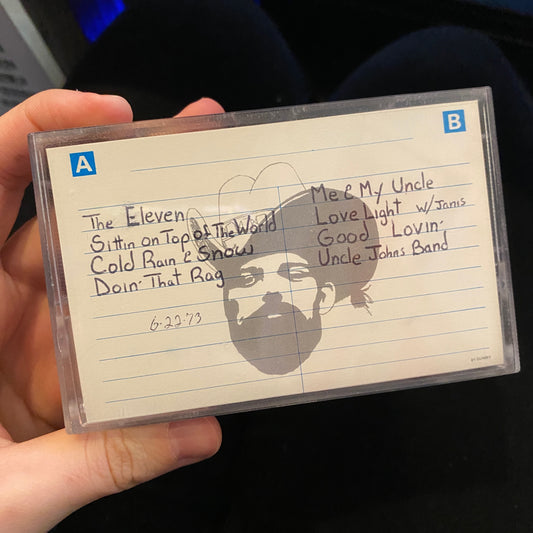 A
B
The Eleven
Sittin on Top of The World
Cold Rain & Snow
Doin' That Rag
6-22-73
Me & My Uncle
Love Light w/ Janis
Good Lovin'
Uncle Johns Band